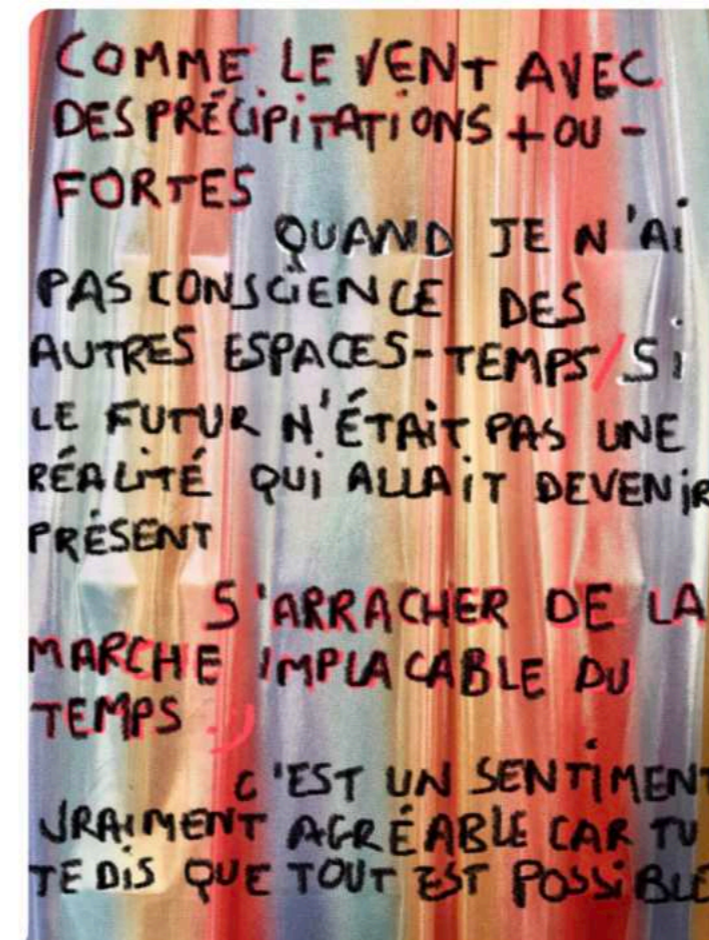 COMME LE VENT AVEC
DES PRÉCIPITATIONS + OU -
FORTES
QUAND JE N'AI
PAS CONSCIENCE DES
AUTRES ESPACES-TEMPS/SI
LE FUTUR N'ÉTAIT PAS UNE
RÉALITÉ QUI ALLAIT DEVENIR
PRÉSENT
S'ARRACHER DE LA
MARCHE IMPLACABLE DU
TEMPS :)
C'EST UN SENTIMENT
VRAIMENT AGRÉABLE CAR TU
TE DIS QUE TOUT EST POSSIBLE